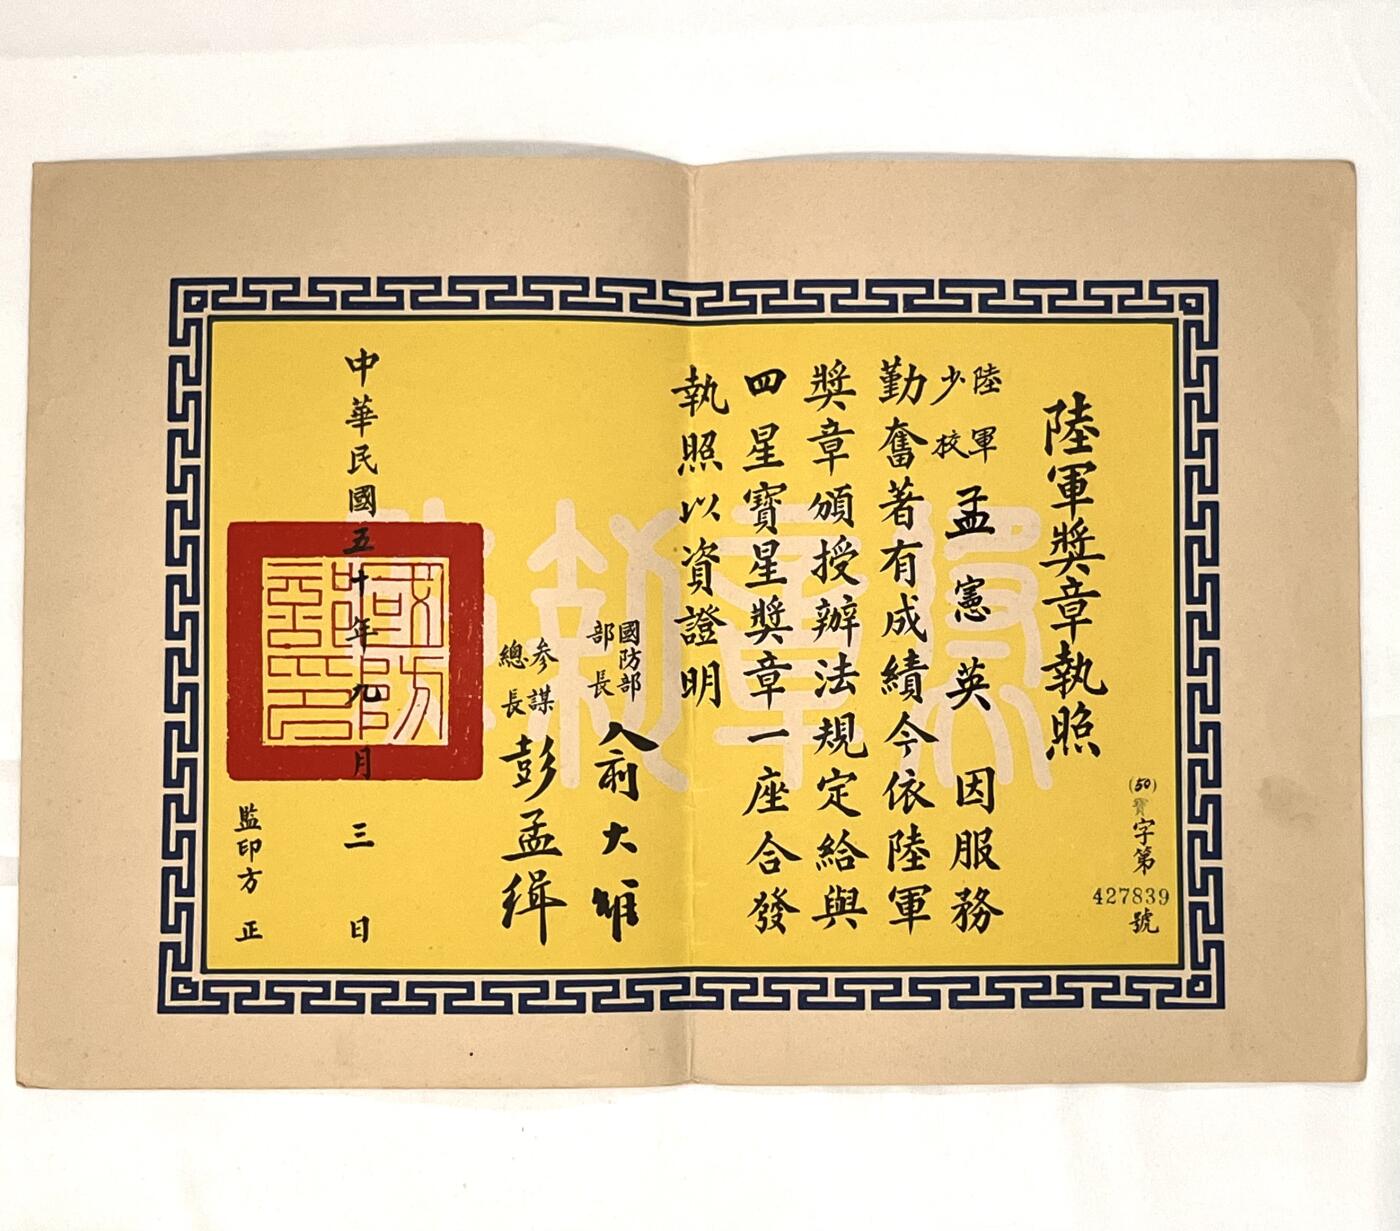 陸軍獎章執照
(50)寶字第427839號
陸軍少校孟憲英因服務
勤奮著有成績今依陸軍
獎章頒授辦法規定給與
四星寶星獎章一座合發
執照以資證明
國防部部長俞大維
參謀總長彭孟緝
中華民國五十年九月三日
監印方正
國防部印
獎章執照